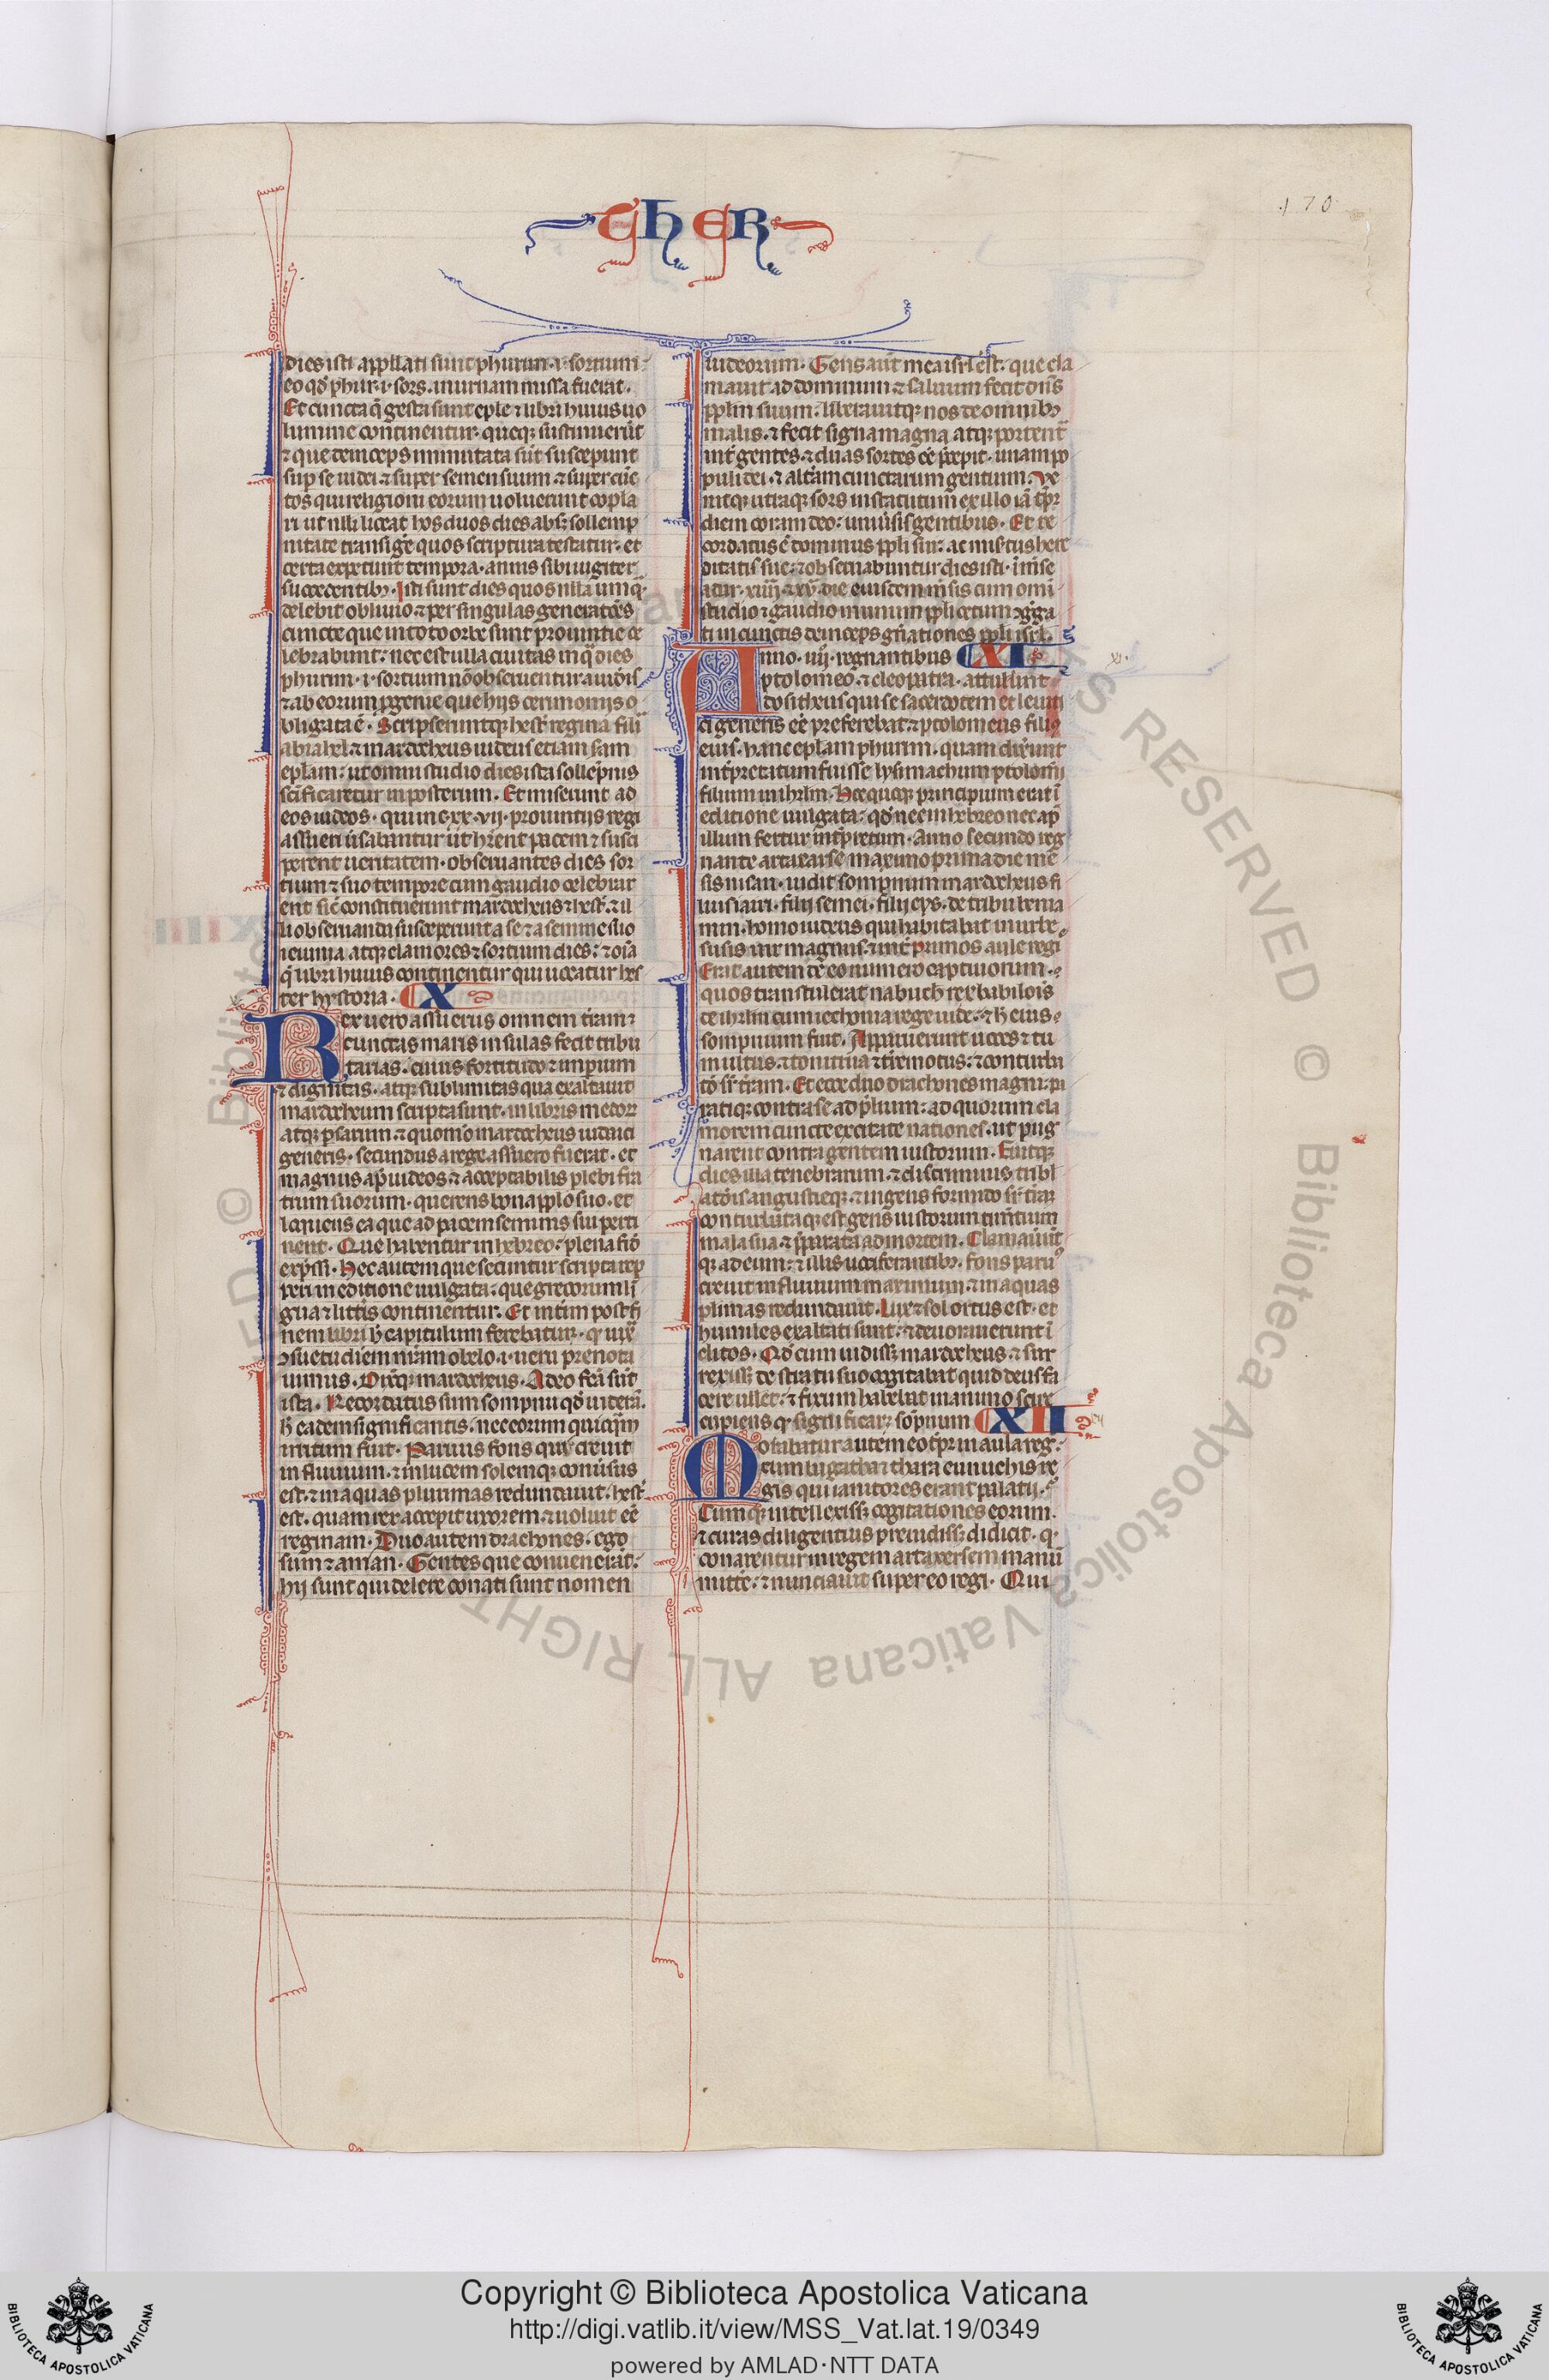 170
THER
dies isti appllati sunt phurim .i. sortium
eo qđ phur .i. sors. in urnam missa fuerat.
Et cuncta q̄ gesta sunt eple ⁊ libri huius uo
lumine continentur. queqꝫ sustinuerūt
⁊ que deinceps immutata sūt suscepunt
sup se iudei ⁊ super semen suum ⁊ super cūc
tos qui religioni eorum uoluerunt copla
ri ut nlli liceat hos duos dies absqꝫ sollemp
nitate transige quos scriptura testatur. et
certa expetunt tempora. annis sibi iugiter
succedentibꝫ. Isti sunt dies quos nlla umq̄
delebit obliuio ⁊ per singulas generatōes
cuncte que in toto orbe sunt prouintie ce
lebrabunt: nec est ulla ciuitas in q̄ dies
phurim .i. sortium nō obseruentur a iudeis
⁊ ab eorum ꝓgenie que hijs cerimonijs o
bligata ē. Scripseruntqꝫ hest̄ regina filia
abiahel. ⁊ mardocheus iudeus etiam scdam
eplam: ut omni studio dies ista sollepnis
sc̄ificaretur in posterum. Et miserunt ad
eos iudeos. qui in .c.xx.vij. prouintijs regi
assueri u̓sabantur ūt hr̄ent pacem ⁊ susci
perent ueritatem. obseruantes dies sor
tium ⁊ suo tempore cum gaudio celebrar
ent sic̄ constituerunt mardocheus ⁊ hest̄. ⁊ il
li obseruanda susceperunt a se ⁊ a semine suo
ieiunia atqꝫ clamores ⁊ sortium dies: ⁊ oīa
q̄ libri huius continentur qui uocatur hes
ter hystoria. X
Rex uero assuerus omnem tr̄am ⁊
cunctas maris insulas fecit tribu
tarias. cuius fortitudo ⁊ imperium
⁊ dignitas. atqꝫ sublimitas qua exaltauit
mardocheum scripta sunt. in libris medor̄
atqꝫ ꝑsarum ⁊ quomō mardocheus iudaici
generis. secundus a rege assuero fuerat. et
magnus ap̄ iudeos. ⁊ acceptabilis plebi fra
trum suorum. querens bona ꝓplo suo. et
loquens ea que ad pacem seminis sui perti
nent. Que habentur in hebreo: plena fidē
exp̄ssi. Hec autem que secuntur scripta rep
peri in editione uulgata: que grecorum li
gua ⁊ litt̄is continentur. Et int̄im post fi
nem libri h̄ capitulum ferebatur. ꝙ iux̄
ↄsuetudiem nr̄am obelo .i. ueru prenota
uimus. Dixitqꝫ mardocheus. A deo fc̄a sūt
ista. Recordatus sum sompnii qđ uideram.
h̄ eadem significantis. nec eorum quicq̄m
irritum fuit. Paruus fons qui creuit
in fluuium. ⁊ in lucem solemqꝫ conu̓sus
est. ⁊ in aquas plurimas redundauit. hest̄
est. quam rex accepit uxorem. ⁊ uoluit eē
reginam. Duo autem drachones. ego
sum ⁊ aman. Gentes que conuenerāt.
hij sunt qui delere conati sunt nomen
iudeorum. Gens aūt mea isrl̄ est. que cla
mauit ad dominum ⁊ saluum fecit dn̄s
ꝓplm suum. liberauitqꝫ nos de omnibꝫ
malis. ⁊ fecit signa magna atqꝫ portent̄
int̄ gentes. ⁊ duas sortes eē p̄cepit. unam po
puli dei. ⁊ alt̄am cunctarum gentium. Ve
nitqꝫ utraqꝫ sors in statutum ex illo iā tp̄r
diem coram deo: uniu̓sis gentibus. Et re
cordatus ē dominus ppli sui: ac misertus here
ditatis sue: ⁊ obseruabuntur dies isti. in mse
adar. xiiij. ⁊ xv. die eiusdem msis cum omi
studio ⁊ gaudio in unum ppli cetum ↄgga
ti in cunctis deinceps gn̄ationes ppli isrl̄.
Anno .iiij. regnantibus XI
ptolomeo. ⁊ cleopatra. attulunt
dositheus qui se sacerdotem et leuiti
ci generis eē preferebat. ⁊ ptolomeus filiꝰ
eius. hanc eplam phurim. quam dixerunt
int̄pretatum fuisse lysimachum ptolomei
filium in ihrl̄m. Hec quoqꝫ principium erat ī
editione uulgata: qđ nec in hebreo nec ap̄
illum fertur int̄pretum. Anno secundo reg
nante artaxarse maximo prima die mē
sis nisan. uidit sompnium mardocheus fi
lius iairi. filij semei. filij cys. de tribu benia
min. homo iudeus qui habitabat in urbe
susis uir magnus. ⁊ int̄ primos aule regi
Erat autem de eo numero captiuorum.
quos transtulerat nabuch rex babilois
de ihrl̄m cum iechonia rege iude: ⁊ h̄ eius
sompnium fuit. Apparuerunt uoces ⁊ tu
multus. ⁊ tonitrua ⁊ tr̄emotus: ⁊ conturba
tō sr̄ tr̄am. Et ecce duo drachones magni: pa
ratiqꝫ contra se ad p̄lium: ad quorum cla
morem cuncte excitate nationes. ut pug
narent contra gentem iustorum. Fuitqꝫ
dies illa tenebrarum. ⁊ discriminis tribl
atōis angustieqꝫ. ⁊ ingens formido sr̄ tr̄am
conturbataqꝫ est gens iustorum timētium
mala sua. ⁊ p̄parata ad mortem. Clamauūt
qꝫ ad deum: ⁊ illis uociferantibꝫ. fons paruꝰ
creuit in fluuium maximum. ⁊ in aquas
plimas redundauit. Lux ⁊ sol ortus est. et
humiles exaltati sunt. ⁊ deuorauerunt ī
clitos. Qđ cum uidissꝫ mardocheus. ⁊ sur
rexissꝫ de stratu suo cogitabat quid deus fa
cere uellet: ⁊ fixum habebat in animo scire
cupiens qꝫ significaret sōpnium XII
Morabatur autem eo tp̄r in aula reg.
cum bigatha ⁊ thara eunuchis re
gis qui ianitores erant palatij.
Cumqꝫ intellexissꝫ cogitationes eorum.
⁊ curas diligentius preuidissꝫ. didicit. ꝙ
conarentur in regem artaxersem manū
mitt̄e: ⁊ nunciauit super eo regi. Qui
xi.
Copyright © Biblioteca Apostolica Vaticana
http://digi.vatlib.it/view/MSS_Vat.lat.19/0349
powered by AMLAD·NTT DATA
BIBLIOTECA APOSTOLICA VATICANA
BIBLIOTECA APOSTOLICA VATICANA
© Biblioteca Apostolica Vaticana ALL RIGHTS RESERVED